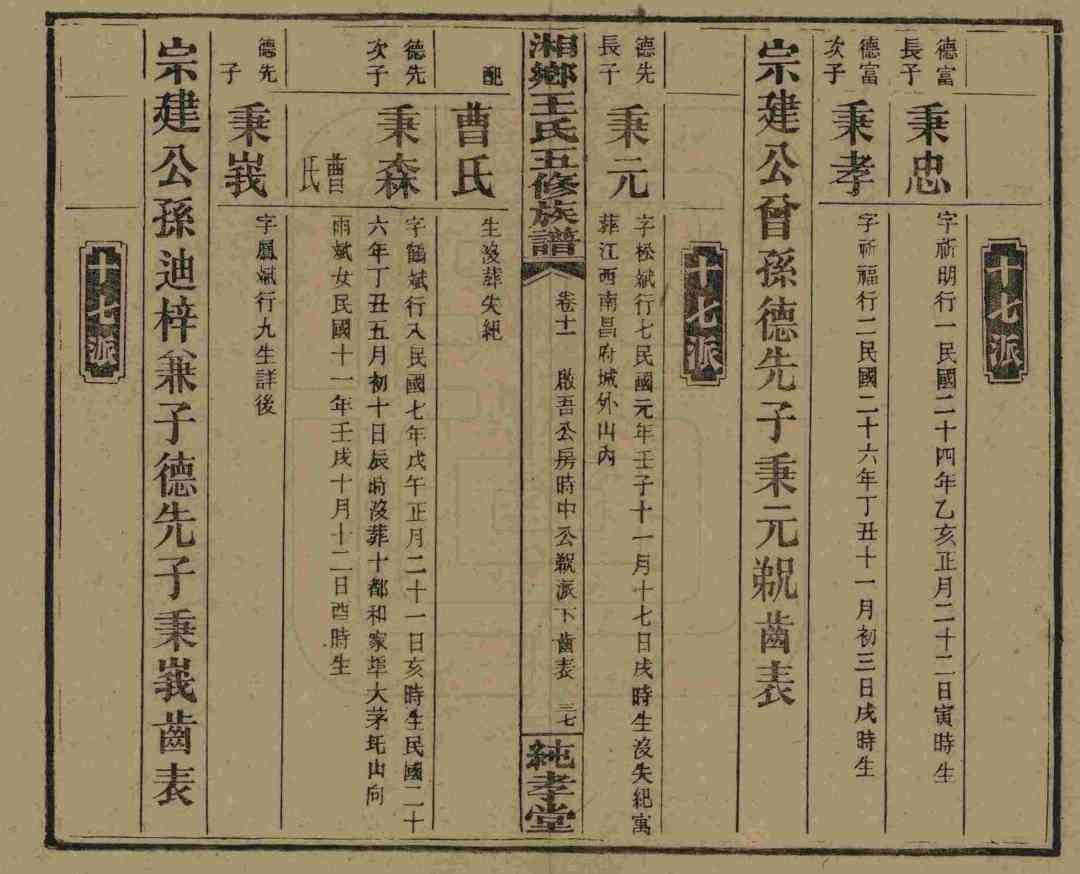 十七派
德富
長子
秉忠
字祈明行一民國二十四年乙亥正月二十二日寅時生
德富
次子
秉孝
字祈福行二民國二十六年丁丑十一月初三日戌時生
宗建公曾孫德先子秉元覣齒表
十七派
德先
長子
秉元
字松斌行七民國元年壬子十一月十七日戌時生沒失紀寓
葬江西南昌府城外山內
湘鄉王氏五修族譜
卷十一
啟吾公房時中公覣派下齒表
三七
純孝堂
配
曹氏
生沒葬失紀
德先
次子
秉森
字鶴斌行八民國七年戊午正月二十一日亥時生民國二十
六年丁丑五月初十日辰時沒葬十都和家埂大茅坵山向
曹氏
雨斌女民國十一年壬戌十月十二日酉時生
德先
子
秉峩
字鳳斌行九生詳後
宗建公孫迪梓兼子德先子秉峩齒表
十七派